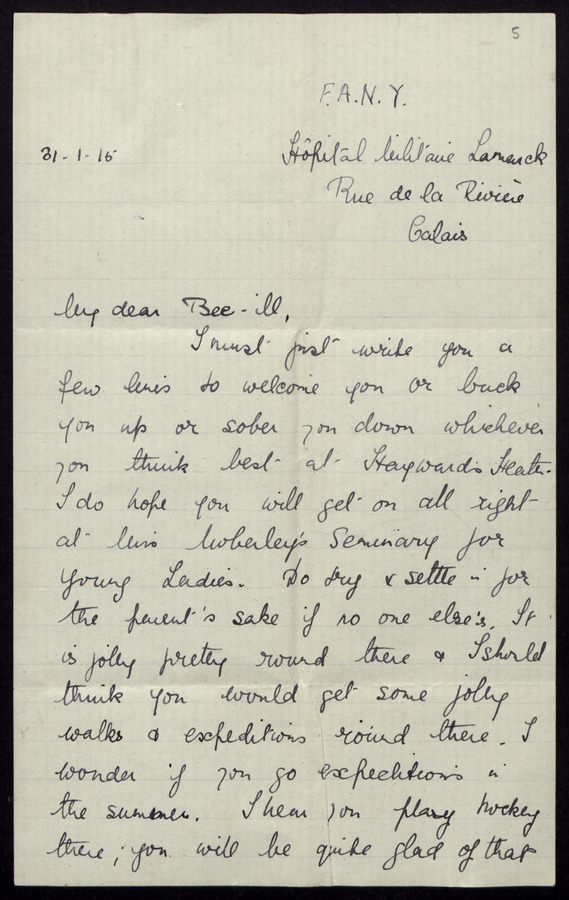 5
F.A.N.Y.
31-1-15
Hôpital Militaire Lamarck
Rue de la Rivière
Calais
My dear Bee-ill,
I must just write you a
few lines to welcome you or buck
you up or sober you down whichever
you think best at Haywards Heath.
I do hope you will get on all right
at Miss Moberley's Seminary for
Young Ladies. Do try & settle in for
the parent's sake if no one else's. It
is jolly pretty round there & I should
think you would get some jolly
walks & expeditions round there. I
wonder if you go expeditions in
the summer. I hear you play hockey
there; you will be quite glad of that